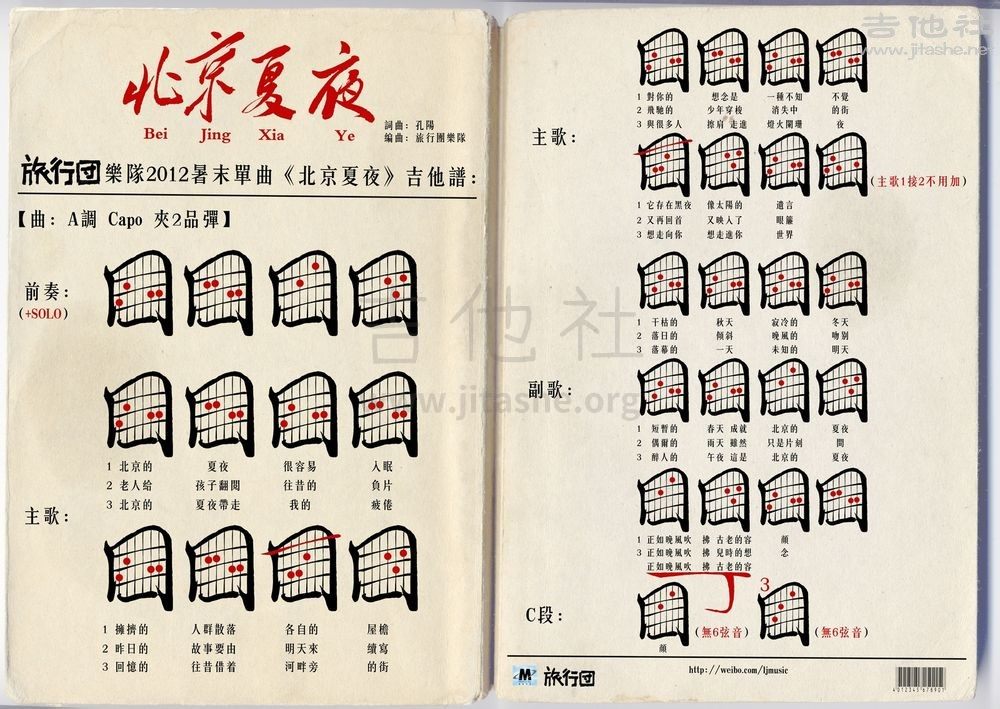 北京夏夜
Bei Jing Xia Ye
詞曲：孔陽
编曲：旅行團樂隊
旅行団 樂隊2012暑末單曲《北京夏夜》吉他譜：
【曲：A調 Capo 夾2品彈】
前奏：
(+SOLO)
主歌：
1 北京的 夏夜 很容易 入眠
2 老人给 孩子翻閱 往昔的 負片
3 北京的 夏夜帶走 我的 疲倦
1 擁擠的 人群散落 各自的 屋檐
2 昨日的 故事要由 明天來 續寫
3 回憶的 往昔借着 河畔旁 的街
吉他社
www.jitashe.net
主歌：
1 對你的 想念是 一種不知 不覺
2 飛馳的 少年穿梭 消失中 的街
3 與很多人 擦肩 走進 燈火闌珊 夜
(主歌1接2不用加)
1 它存在黑夜 像太陽的 遺言
2 又再回首 又映人了 眼簾
3 想走向你 想走進你 世界
副歌：
1 干枯的 秋天 寂冷的 冬天
2 落日的 傾斜 晚風的 吻別
3 落幕的 一天 未知的 明天
1 短暫的 春天 成就 北京的 夏夜
2 偶爾的 雨天 雖然 只是片刻 間
3 醉人的 午夜 這是 北京的 夏夜
1 正如晚風吹 拂 古老的容 顔
3 正如晚風吹 拂 兒時的想 念
正如晚風吹 拂 古老的容
C段：
3
(無6弦音) (無6弦音)
顔
旅行团
http://weibo.com/ljmusic
4012345678901
吉他社
www.jitashe.org